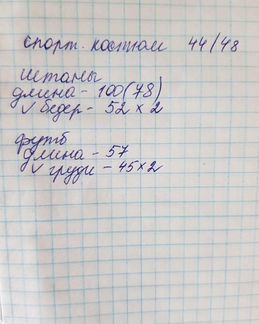 спорт. костюм 44/48
штаны
длина - 100(78)
√ бедер - 52 × 2
футб
длина - 57
√ груди - 45×2